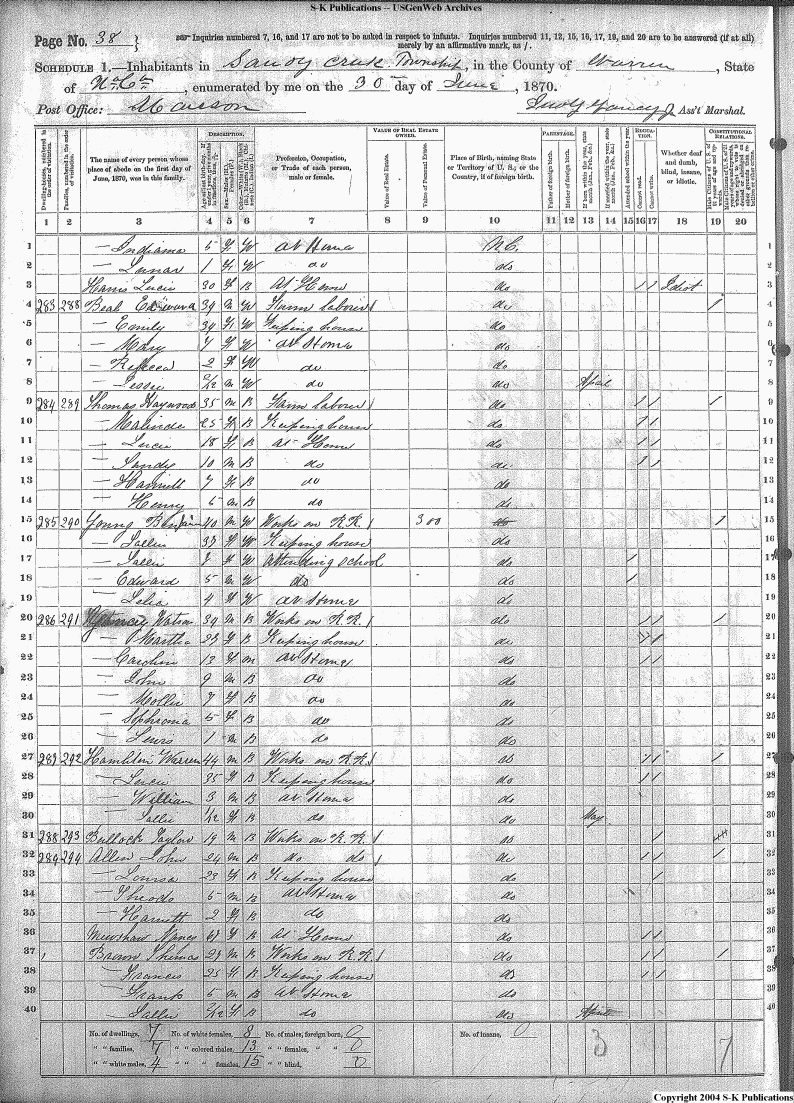 S-K Publications -- USGenWeb Archives
Page No. 38
Inquiries numbered 7, 16, and 17 are not to be asked in respect to infants. Inquiries numbered 11, 12, 15, 16, 17, 19, and 20 are to be answered (if at all) merely by an affirmative mark, as /.
SCHEDULE 1.—Inhabitants in Sandy Creek Township, in the County of Warren, State
of N. Ca, enumerated by me on the 30 day of June, 1870.
Post Office: Macson
Ass't Marshal.
DESCRIPTION. VALUE OF REAL ESTATE OWNED. PARENTAGE. EDUCATION. CONSTITUTIONAL RELATIONS.
Dwelling-houses, numbered in the order of visitation.
Families, numbered in the order of visitation.
The name of every person whose place of abode on the first day of June, 1870, was in this family.
Profession, Occupation, or Trade of each person, male or female.
Value of Real Estate.
Value of Personal Estate.
Place of Birth, naming State or Territory of U. S.; or the Country, if of foreign birth.
Father of foreign birth.
Mother of foreign birth.
Attended school within the year.
Cannot read.
Cannot write.
Whether deaf and dumb, blind, insane, or idiotic.
1 2 3 4 5 6 7 8 9 10 11 12 13 14 15 16 17 18 19 20
1 — Indiana 5 F W At Home N.C. 1
2 — Lunar 1 F W do do 2
3 Harris Lucie 30 F B At Home do / / Idiot 3
4 283 288 Beal Edward 39 M W Farm laborer do / 4
5 — Emily 39 F W Keeping house do 5
6 — Mary 7 F W At Home do 6
7 — Rebecca 2 F W do do 7
8 — Jessee 2/12 M W do do April 8
9 284 289 Thomas Haywood 35 M B Farm laborer do / / / 9
10 — Malinda 25 F B Keeping house do / / 10
11 — Lucie 18 F B At Home do / / 11
12 — Sandy 10 M B do do / / 12
13 — Harriett 7 F B do do 13
14 — Henry 5 M B do do 14
15 285 290 Young Benjamin 40 M W Works on R.R. 300 do / 15
16 — Sallie 37 F W Keeping house do 16
17 — Sallie 7 F W Attending School do / 17
18 — Edward 5 M W do do / 18
19 — Lelia 4 F W At Home do 19
20 286 291 Watson 39 M B Works on R.R. do / / / 20
21 — Martha 27 F B Keeping house do / / 21
22 — Caroline 12 F M At Home do / / 22
23 — John 9 M B do do 23
24 — Mollie 7 F B do do 24
25 — Sophronia 5 F B do do 25
26 — Lewis 1 M B do do 26
27 287 292 Hamblin Warren 44 M B Works on R.R. do / / / 27
28 — Lucie 35 F B Keeping house do / / 28
29 — William 3 M B At Home do 29
30 — Sallie 1/12 F B do do May 30
31 288 293 Bullock Taylor 19 M B Works on R.R. do / 31
32 289 294 Allen John 24 M B do do do / / / 32
33 — Louisa 23 F B Keeping house do / 33
34 — Theodo 5 M B At Home do 34
35 — Harriett 2 F B do do 35
36 Nancy 67 F B At Home do / / 36
37 Brown Thomas 27 M B Works on R.R. do / / / 37
38 — Francis 25 F B Keeping house do / / 38
39 — Frank 5 M B At Home do 39
40 — Sallie 2/12 F B do do April 40
No. of dwellings, 7 No. of white females, 8 No. of males, foreign born, 0 No. of insane, 0
" " families, 7 " " colored males, 13 " " females, " " 0 3 7
" " white males, 4 " " " females, 15 " " blind, 0
Copyright 2004 S-K Publications